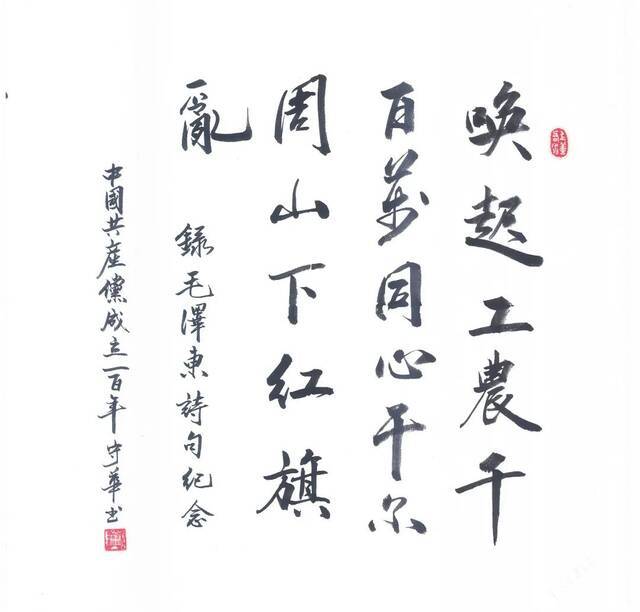 喚起工農千
百萬同心干不
周山下红旗
亂
錄毛澤東詩句纪念
中國共產儻成立一百年 守華书